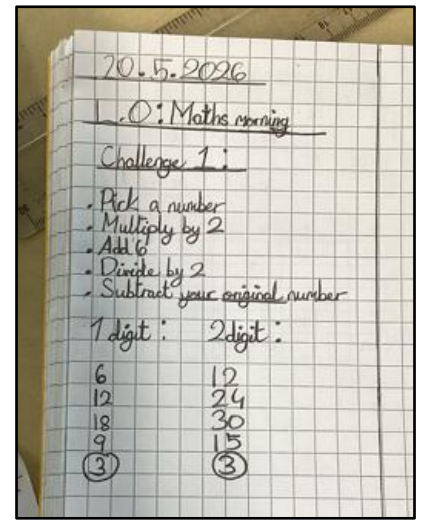 20.5.2026
L.O: Maths morning
Challenge 1:
• Pick a number
• Multiply by 2
• Add 6
• Divide by 2
• Subtract your original number
1 digit: 2digit:
6 12
12 24
18 30
9 15
3 3